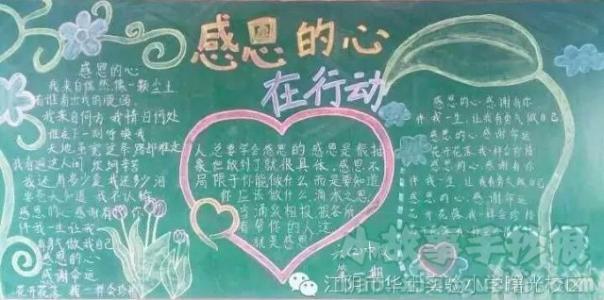 感恩的心
在行动
感恩的心
我来自偶然像一颗尘土
有谁看出我的脆弱
我来自何方 我情归何处
谁在下一刻呼唤我
天地虽宽这条路却难走
我看遍这人间坎坷辛苦
我还有多少爱 我还多少泪
要苍天知道 我不认输
感恩的心感谢有你
伴我一生让我
有勇气做我自己
感恩的心
感谢命运
花开花落 我一样会珍惜
人总要学会感恩的感恩是很抽
象也做到了就很具体,感恩不
局限于你能做什么而是要知道
你应该做什么滴水之恩,
当涌泉相报被各所
有帮你的人这
就是感恩
感恩的心感谢有你
伴我一生让我有勇气做自己
感恩的心 感谢命运
花开花落我一样会珍惜
感恩的心感谢有你
伴我一生让我有勇气做自己
感恩的心,感谢命运
花开花落我一样会珍惜
小故事手抄报
江阴市华士实验小学曙光校区